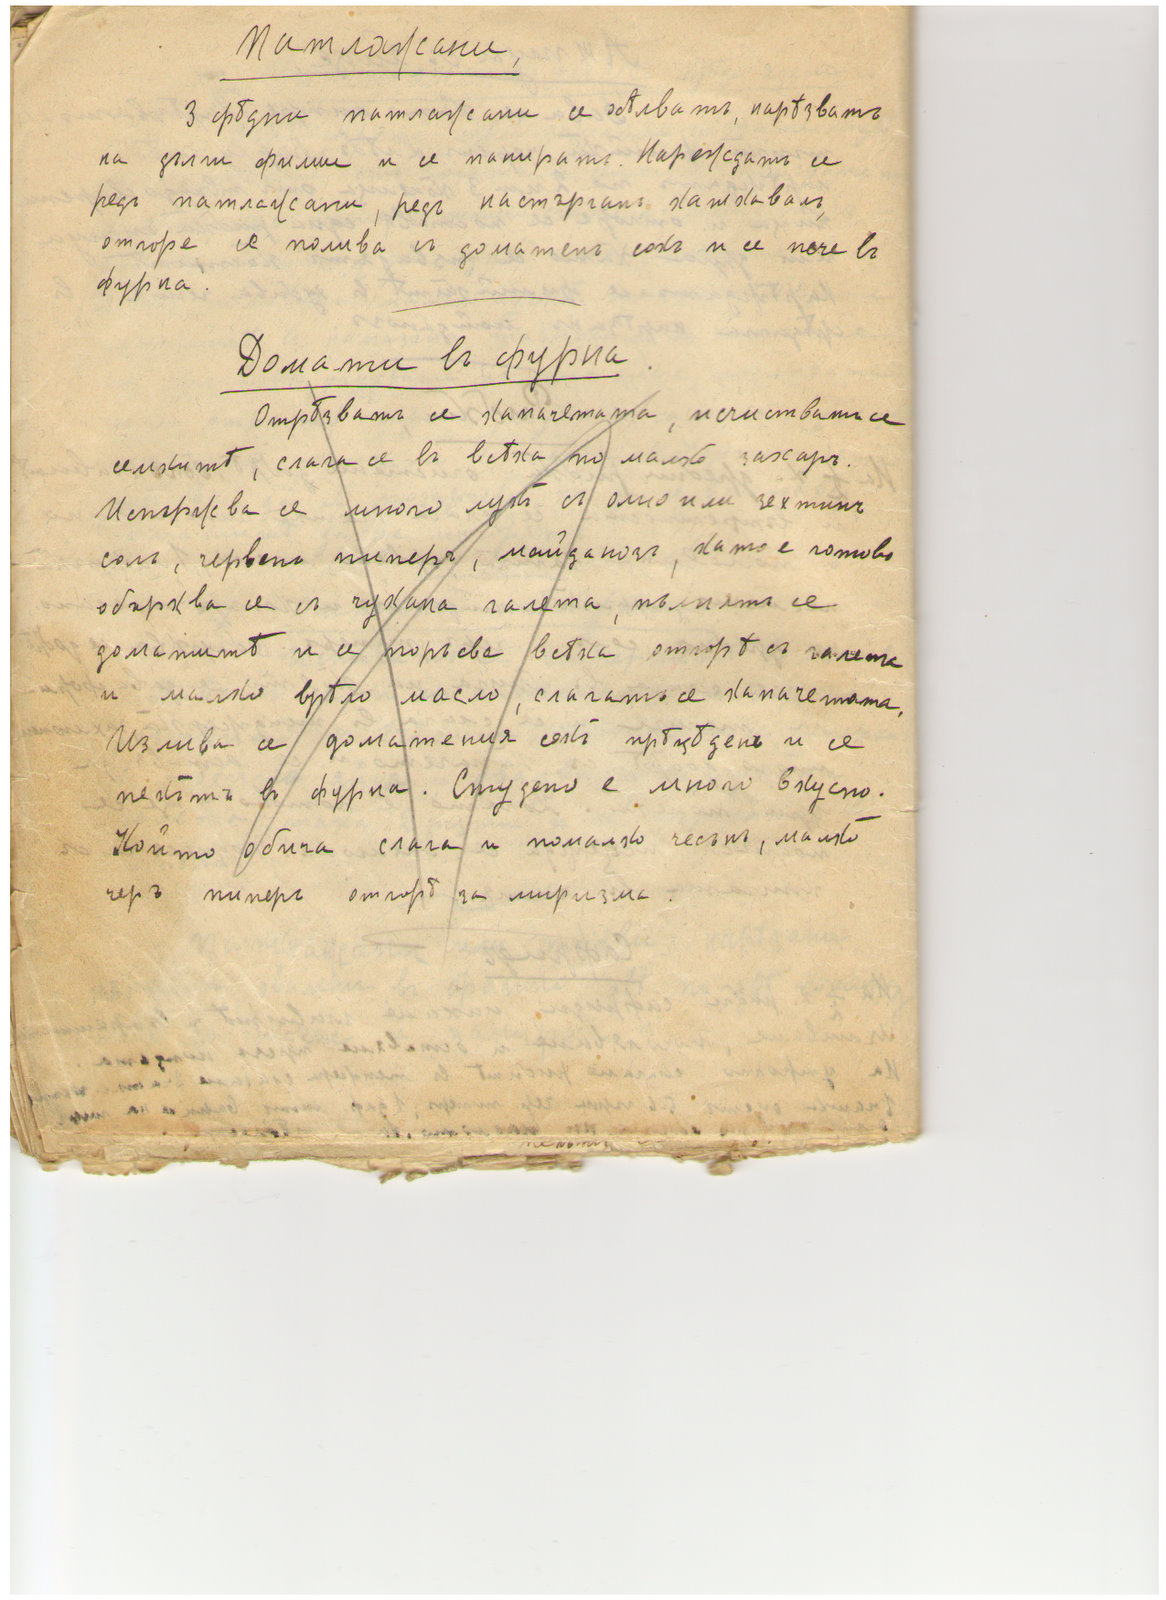 Патладжани,
3 срѣдни патладжани се бѣлватъ, нарѣзватъ
на дълги филии и се паниратъ. Нареждатъ се
редъ патладжани, редъ настърганъ кашкавалъ,
отгоре се полива съ доматенъ сокъ и се пече въ
фурна.
Домати въ фурна.
Отрѣзватъ се капачетата, исчистватъ се
семкитѣ, слага се въ всѣка по малко захаръ.
Испържва се много лукъ съ олио или зехтинъ
соль, червенъ пиперъ, майданозъ, като е готово
обърква се съ чукана галета, пълнятъ се
доматитѣ и се поръсва всѣка отгорѣ съ галета
и малко врѣло масло, слагатъ се капачетата,
Излива се доматения сокъ прѣцѣденъ и се
пекътъ въ фурна. Студено е много вкусно.
Който обича слага и помалко чесънъ, малко
черъ пиперъ отгорѣ за миризма.